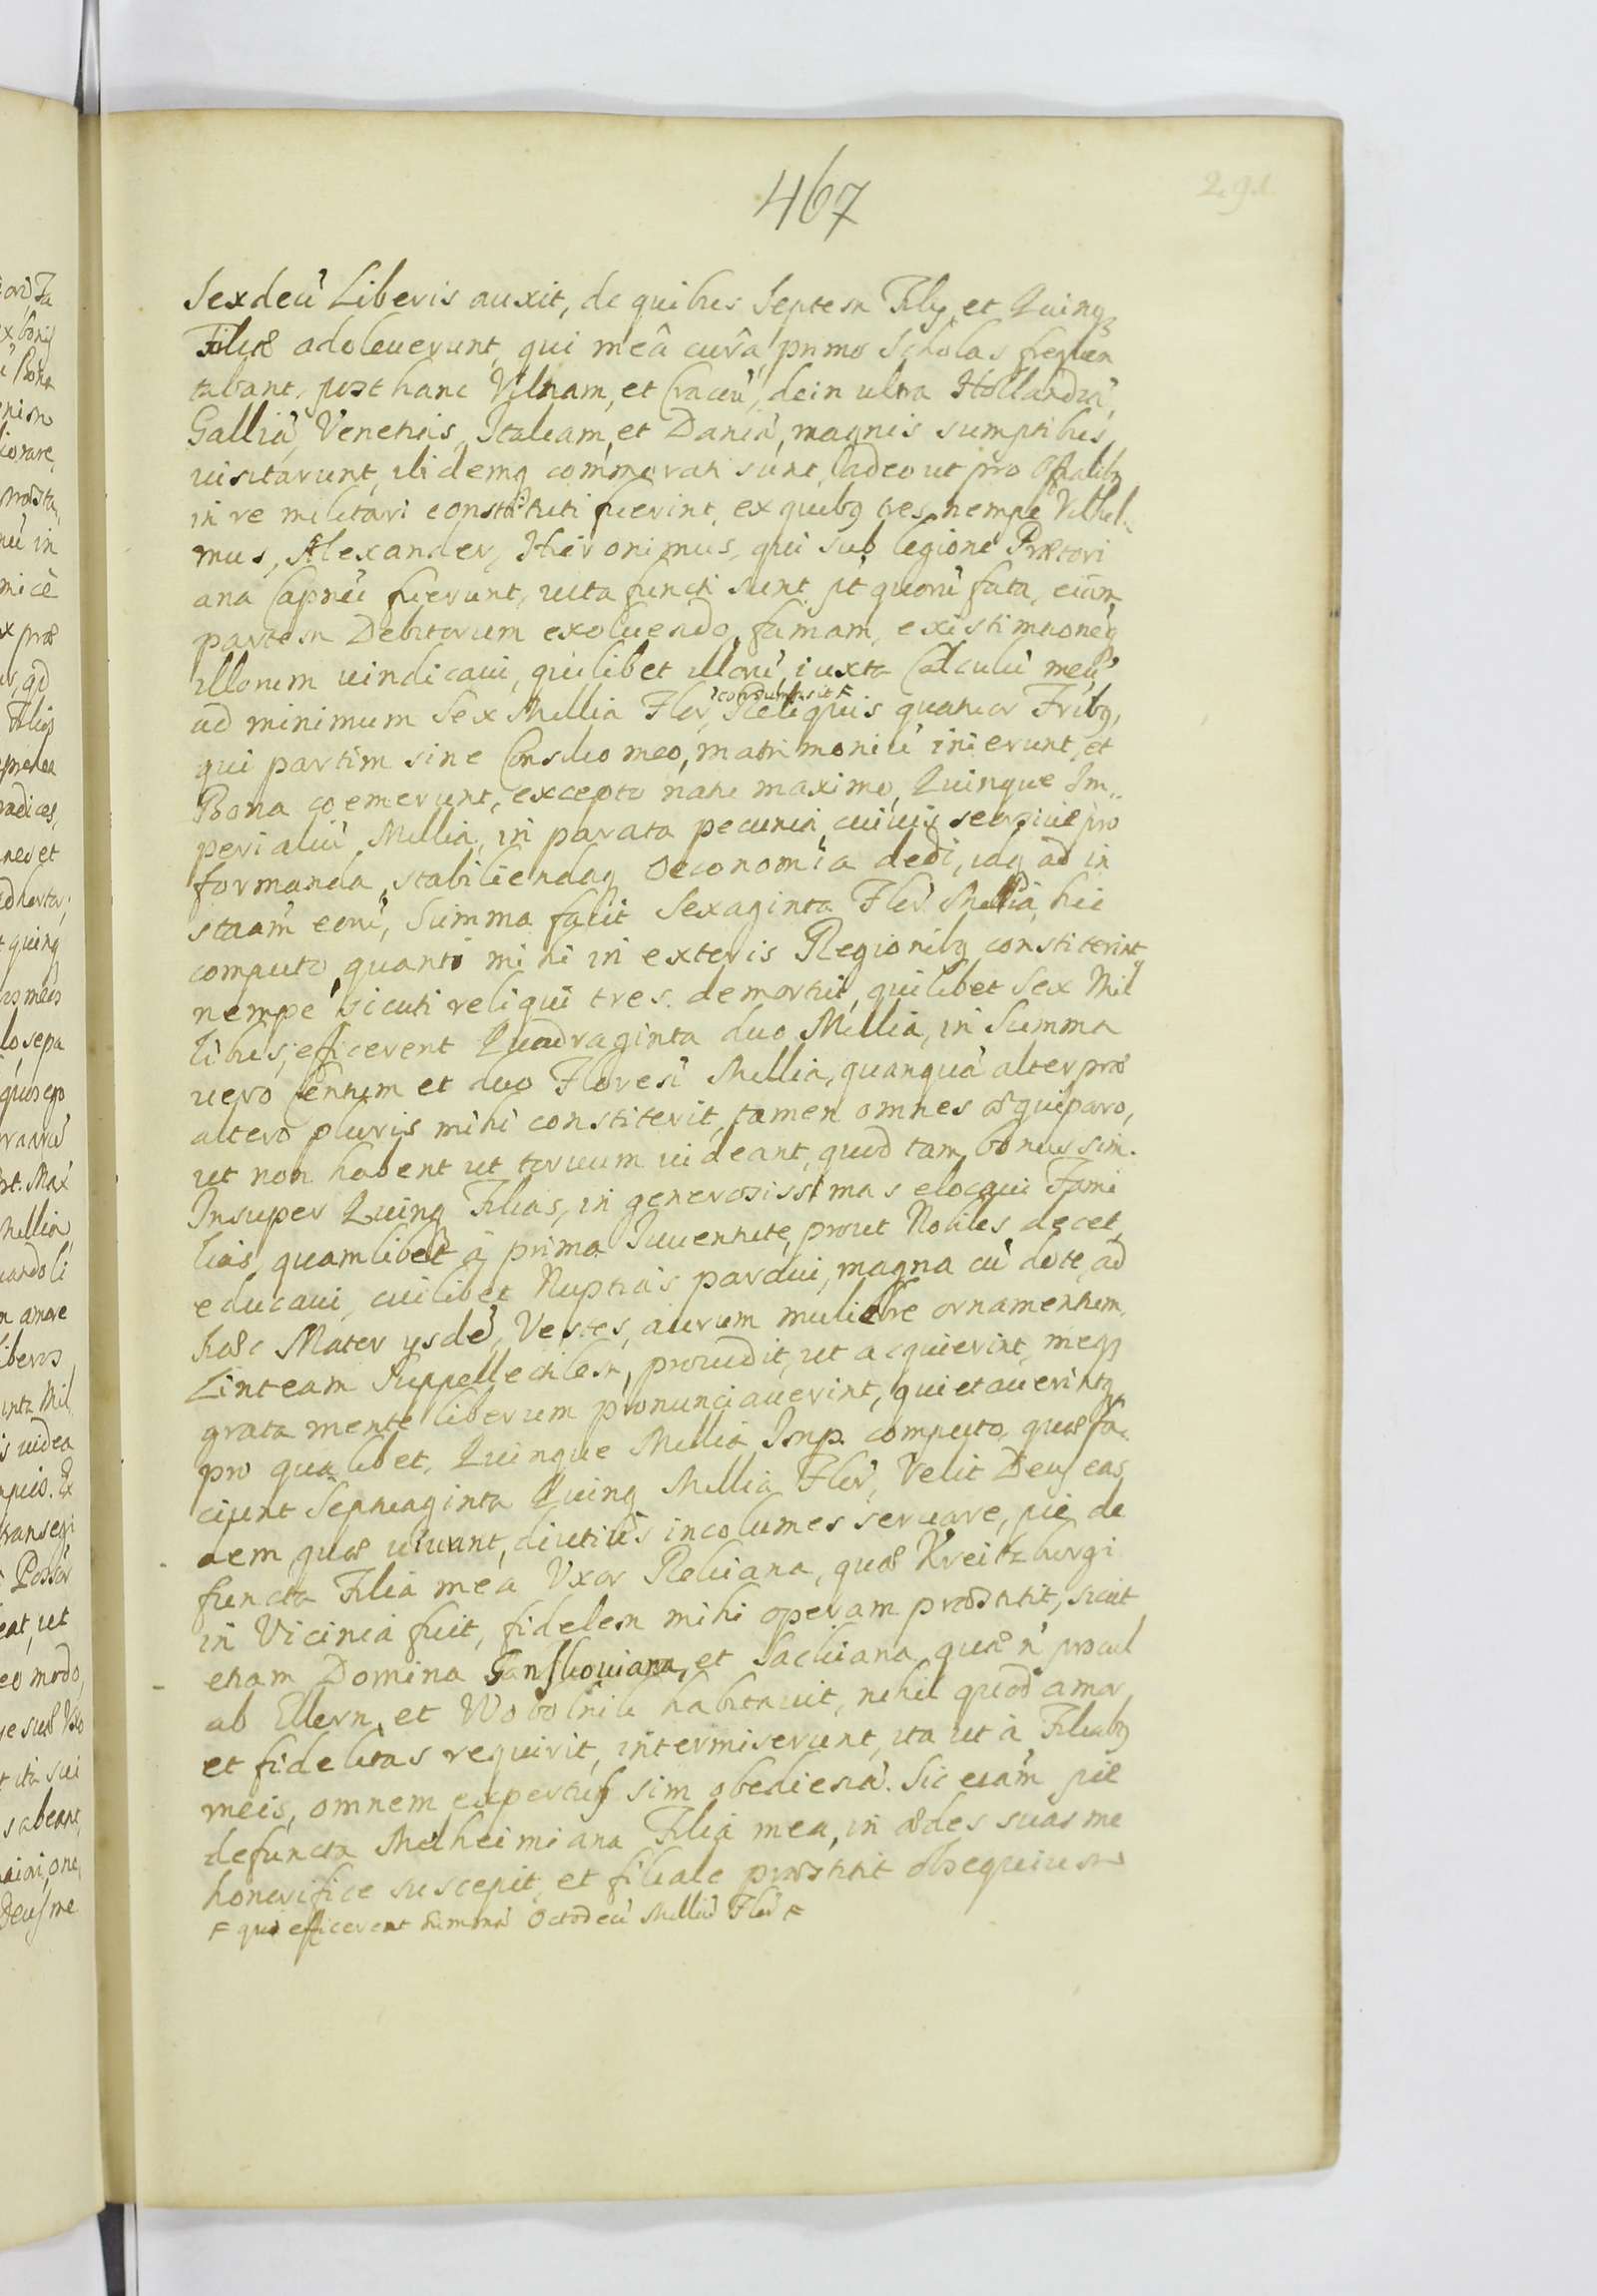 467
291
Sexdecì Liberis auxit, de quibus Septem Filij, et Quinq
Filiæ adoleverunt, qui meâ curâ, primo Scholas frequen
tabant, post hanc Vilnam, et Cracou, dein ultra Hollandià,
Gallià, Venetiis, Italiam, et Danià, magnis sumptibus,
visitarunt, ibidemq commorati sunt, adeo ut pro
in re militari constituti fuerint, ex quibq tres, nempe Vilhel
mus, Alexander, Hieronimus, qui sub legione Prætori
ana Capnei fuerunt, vita functi sunt, pt quorù fata, eiam
partem Debitorum exolvendo, famam, existimaonéq
illorum vindicavi, quilibet illorù, iuxta Calculù meù,
ad minimum Sex Millia Flor, constitit F Reliquis quatuor Fribq,
qui partim sine Consilio meo, matrimoniù inierunt, et
Bona coemerunt, excepto natu maximo, Quinque Im
perialiù Millia, in parata pecunia, cuivis seorsive pro
formanda, stabiliendaq Oeconomia dedi, idq ad in
staam eorù, Summa facit Sexaginta Flor. Millia, hic
computo, quanti mihi in exteris Regionibq constiterint
nempe sicuti reliqui tres demortui, quilibet Sex Mil
libus, efficerent Quadraginta duo Millia, in Summa
vero Centum et duo Floresì Millia, quanquà alter præ
altero pluris mihi constiterit, tamen omnes æquiparo,
ut non habent ut torvum videant, quod tam bonus sim.
Insuper Quinq Filias, in generosissimas elocavi Fami
lias, quamlibet à prima Iuventute, prout Nobiles decet,
educavi, cuilibet Nuptias paravi, magna cù dote, ad
hæc Mater ysdé, Vestes, aurum muliebre ornamentum,
Linteam Suppellectilem, providit, ut acquierint, meq
grata mente liberum pronunciaverint, quietaverintq
pro qualibet, Quinque Millia Imp. computo, quæ fa
ciunt Septuaginta Quinq Millia Flor, Velit Deus eas
dem quæ vivunt, diutius incolumes servare, pie de
functa Filia mea Uxor Reliana, quæ Kreitzburgi
in Vicinia fuit, fidelem mihi operam præstitit, sicut
etiam Domina Ganskoviana, et Sackiana, quæ n procul
ab Ellern, et Wobolniki habitavit, nihil quod amor,
et fidelitas requirit, intermiserunt, ita ut à Filiabq
meis, omnem expertus sim obedienià. Sic eiam pie
defuncta Melheimiana Filia mea, in ædes suas me
honorifice suscepit, et filiale præstitit obsequium
F quo efficerent Summà Octodecì Milliù Flor F